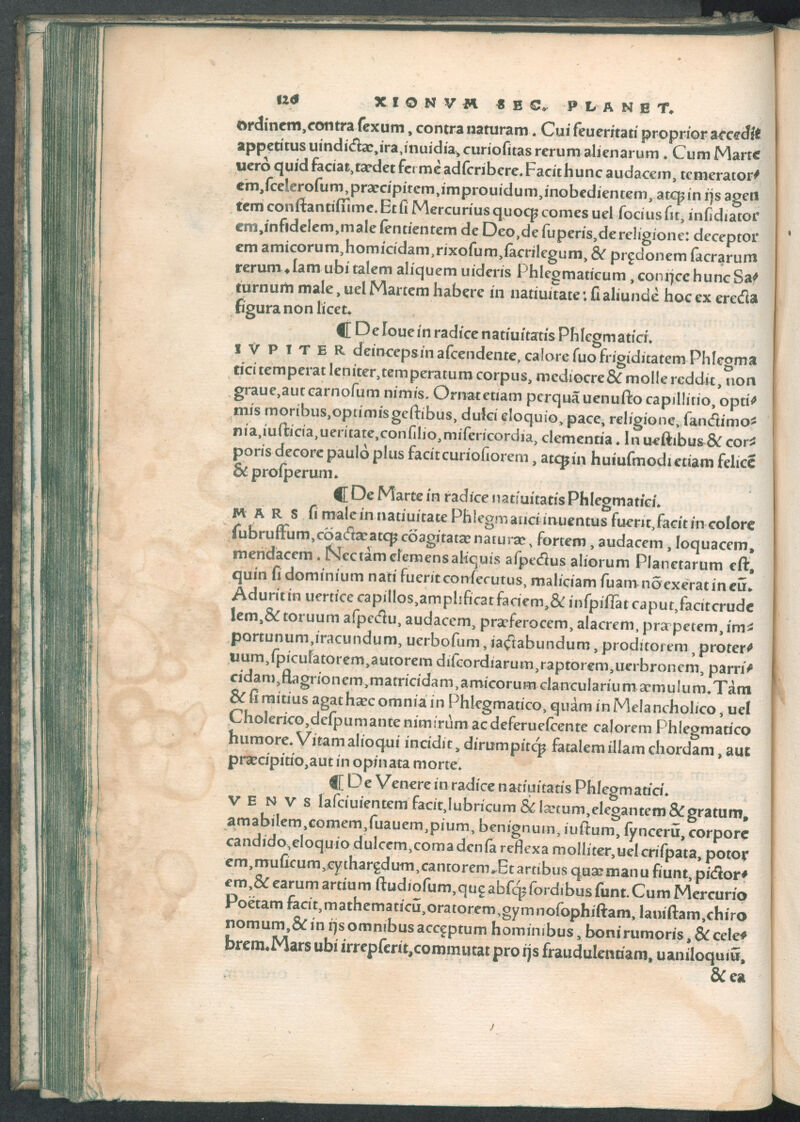 126 XIONVM SEC. PLANET.
ordinem, contra ſexum, contra naturam. Cui ſeueritati proprior accedit
appetitus uindictæ, ira, inuidia, curioſitas rerum alienarum. Cum Marte
uerò quid faciat, tædet fermè adſcribere. Facit hunc audacem, temerator⸗
em, ſceleroſum, præcipitem, improuidum, inobedientem, atq́ꝫ in ijs agen
tem conſtantiſſime. Et ſi Mercurius quoq́ꝫ comes uel ſocius ſit, inſidiator
em, infidelem, male ſentientem de Deo, de ſuperis, de religione: deceptor
em amicorum, homicidam, rixoſum, ſacrilegum, & prędonem ſacrarum
rerum. Iam ubi talem aliquem uideris Phlegmaticum, conijce hunc Sa⸗
turnum male, uel Martem habere in natiuitate: ſi aliundè hoc ex erecta
figura non licet.
¶ De Ioue in radice natiuitatis Phlegmatici.
IVPITER deinceps in aſcendente, calore ſuo frigiditatem Phlegma
tici temperat leniter, temperatum corpus, mediocre & molle reddit, non
graue, aut carnoſum nimis. Ornat etiam perquã uenuſto capillitio, opti⸗
mis moribus, optimis geſtibus, dulci eloquio, pace, religione, ſanctimo⸗
nia, iuſticia, ueritate, conſilio, miſericordia, clementia. In ueſtibus & cor⸗
poris decore paulò plus facit curioſiorem, atq́ꝫ in huiuſmodi etiam felicẽ
& proſperum.
¶ De Marte in radice natiuitatis Phlegmatici.
MARS ſi male in natiuitate Phlegmatici inuentus fuerit, facit in colore
ſubruffum, cõactæ atq́ꝫ cõagitatæ naturæ, fortem, audacem, loquacem,
mendacem. Nec tàm clemens aliquis aſpectus aliorum Planetarum eſt,
quin ſi dominium nati fuerit conſecutus, maliciam ſuam nõ exerat in eũ.
Adurit in uertice capillos, amplificat faciem, & inſpiſſat caput, facit crude
lem, & toruum aſpectu, audacem, præferocem, alacrem, præpetem, im⸗
portunum, iracundum, uerboſum, iactabundum, proditorem, proter⸗
uum, ſpiculatorem, autorem diſcordiarum, raptorem, uerbronem, parri⸗
cidam, flagrionem, matricidam, amicorum clancularium æmulum. Tàm
& ſi mitius agat hæc omnia in Phlegmatico, quàm in Melancholico, uel
Cholerico, deſpumante nimirùm ac deferueſcente calorem Phlegmatico
humore. Vitam alioqui incidit, dirumpitq́ꝫ fatalem illam chordam, aut
præcipitio, aut in opinata morte.
¶ De Venere in radice natiuitatis Phlegmatici.
VENVS laſciuientem facit, lubricum & lætum, elegantem & gratum,
amabilem, comem, ſuauem, pium, benignum, iuſtum, ſyncerũ, corpore
candido, eloquio dulcem, coma denſa reflexa molliter, uel criſpata, potor
em, muſicum, cythargdum, cantorem. Et artibus quæ manu fiunt, pictor⸗
em, & earum artium ſtudioſum, quę abſq́ꝫ ſordibus ſunt. Cum Mercurio
Poëtam facit, mathematicũ, oratorem, gymnoſophiſtam, laniſtam, chiro
nomum, & in ijs omnibus acceptum hominibus, boni rumoris, & cele⸗
brem. Mars ubi irrepſerit, commutat pro ijs fraudulentiam, uaniloquiũ,
& ea